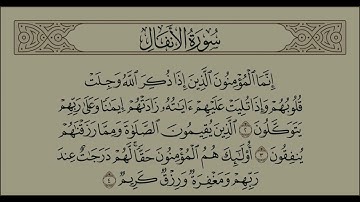 سُورَةُ الأَنفَالِ
إِنَّمَا ٱلْمُؤْمِنُونَ ٱلَّذِينَ إِذَا ذُكِرَ ٱللَّهُ وَجِلَتْ
قُلُوبُهُمْ وَإِذَا تُلِيَتْ عَلَيْهِمْ ءَايَٰتُهُۥ زَادَتْهُمْ إِيمَٰنًا وَعَلَىٰ رَبِّهِمْ
يَتَوَكَّلُونَ ٢ ٱلَّذِينَ يُقِيمُونَ ٱلصَّلَوٰةَ وَمِمَّا رَزَقْنَٰهُمْ
يُنفِقُونَ ٣ أُو۟لَٰٓئِكَ هُمُ ٱلْمُؤْمِنُونَ حَقًّا لَّهُمْ دَرَجَٰتٌ عِندَ
رَبِّهِمْ وَمَغْفِرَةٌ وَرِزْقٌ كَرِيمٌ ٤